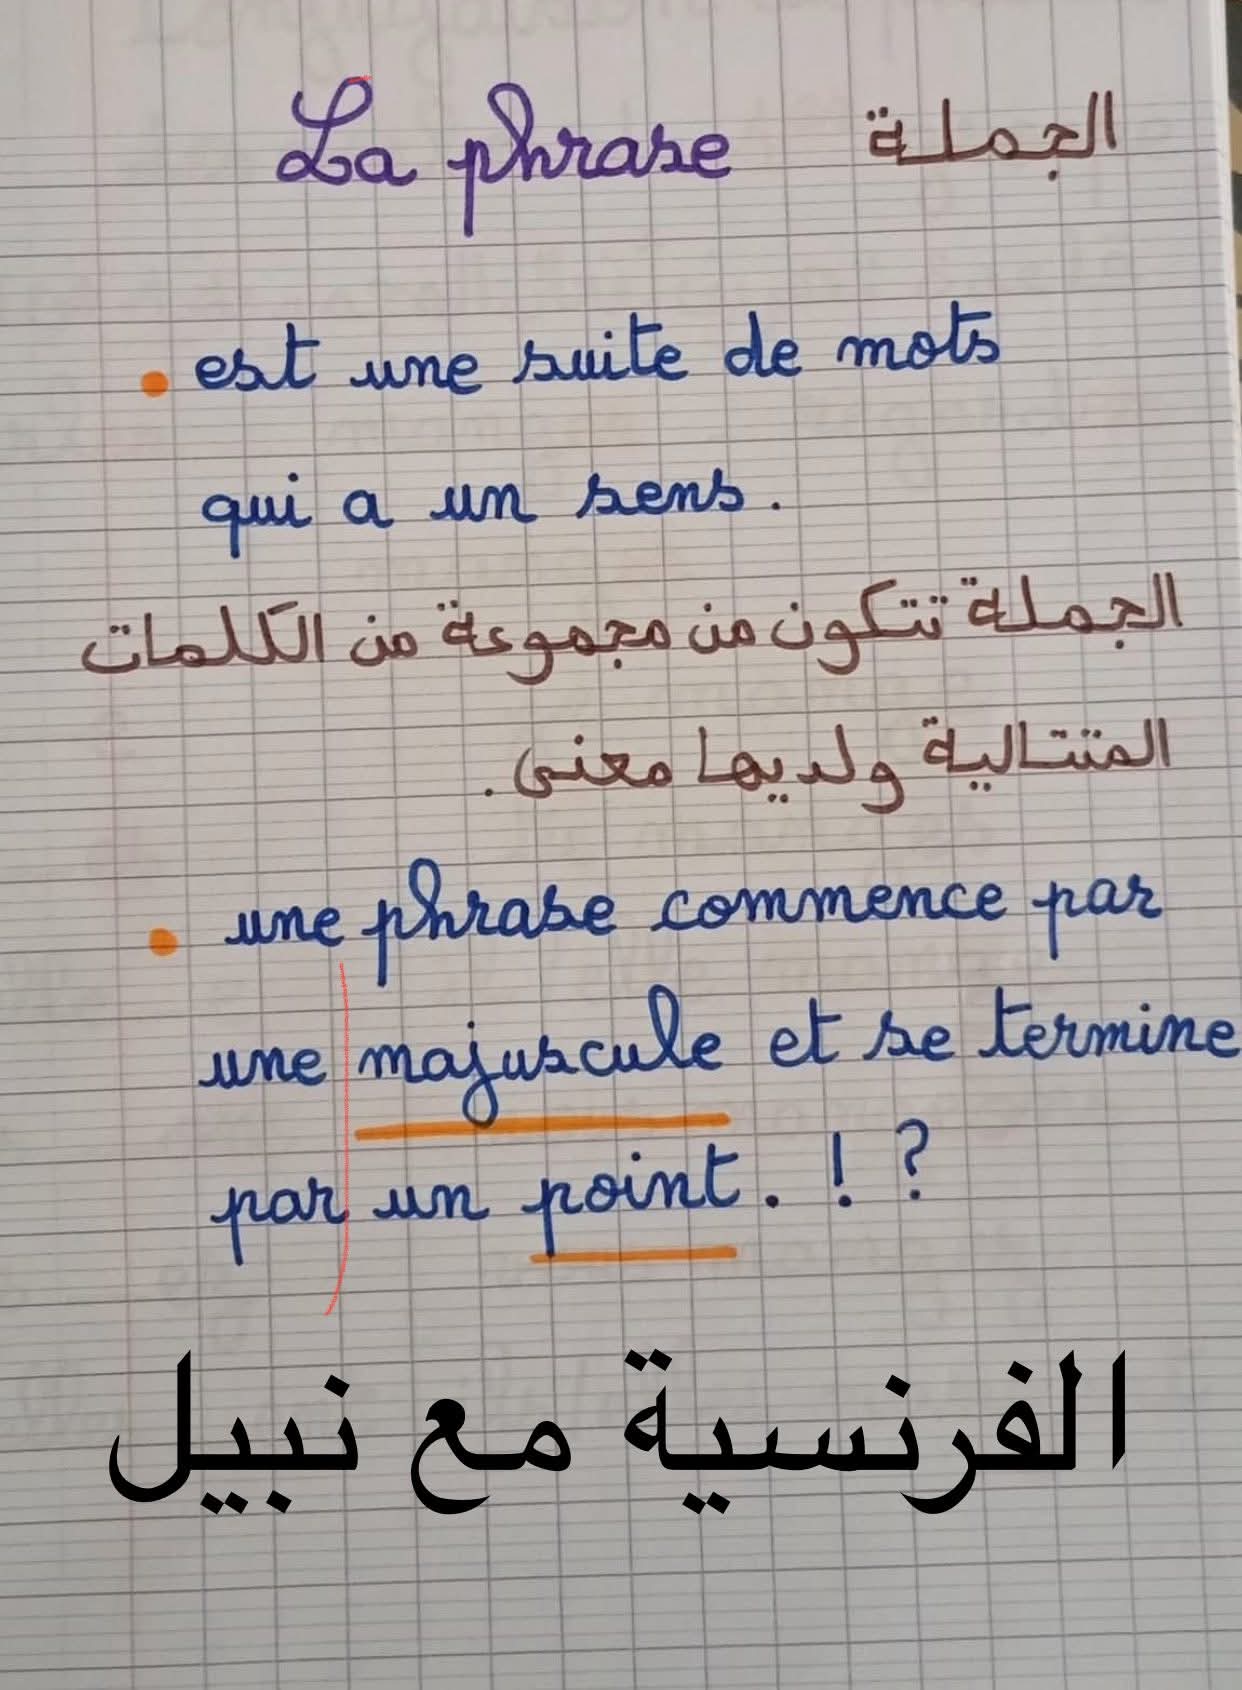 La phrase الجملة
• est une suite de mots
qui a un sens.
الجملة تتكون من مجموعة من الكلمات
المتتالية ولديها معنى.
• une phrase commence par
une majuscule et se termine
par un point. ! ?
الفرنسية مع نبيل